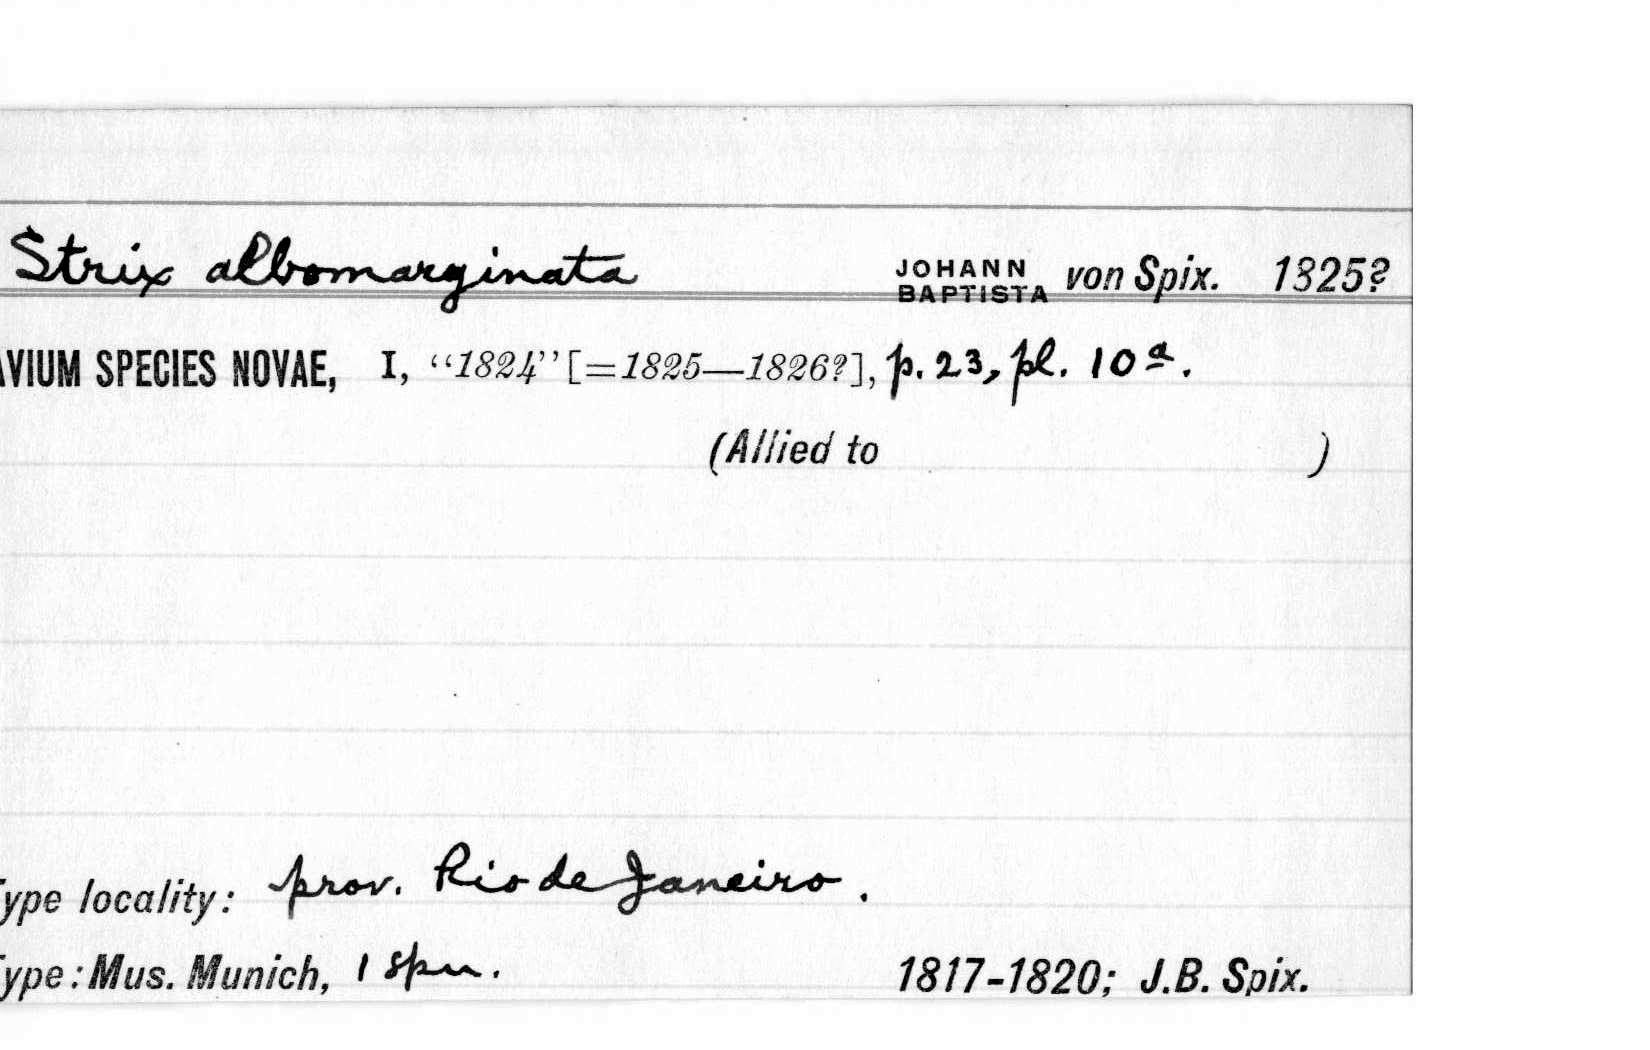 Strix albomarginata JOHANN BAPTISTA von Spix. 1825?
AVIUM SPECIES NOVAE, I, “1824” [=1825—1826?], p. 23, pl. 10a.
(Allied to )
Type locality: prov. Rio de Janeiro.
Type: Mus. Munich, 1 spm. 1817-1820; J.B. Spix.